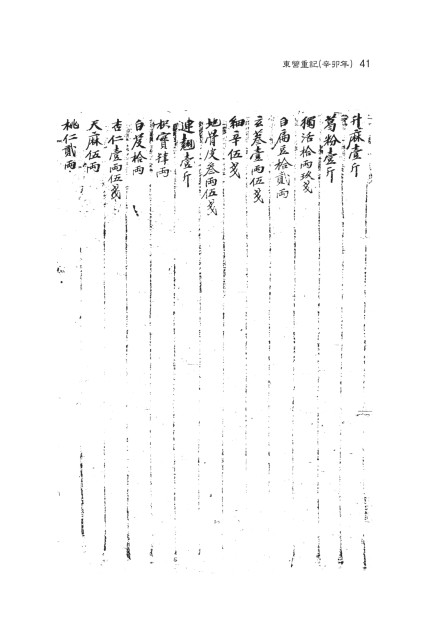 東營重記(辛卯年) 41
升麻壹斤
葛粉壹斤
獨活拾兩玖戔
白扁豆拾貳兩
玄蔘壹兩伍戔
細辛伍戔
地骨皮叄兩伍戔
連翹壹斤
枳實肆兩
白芨拾兩
杏仁壹兩伍戔
天麻伍兩
桃仁貳兩